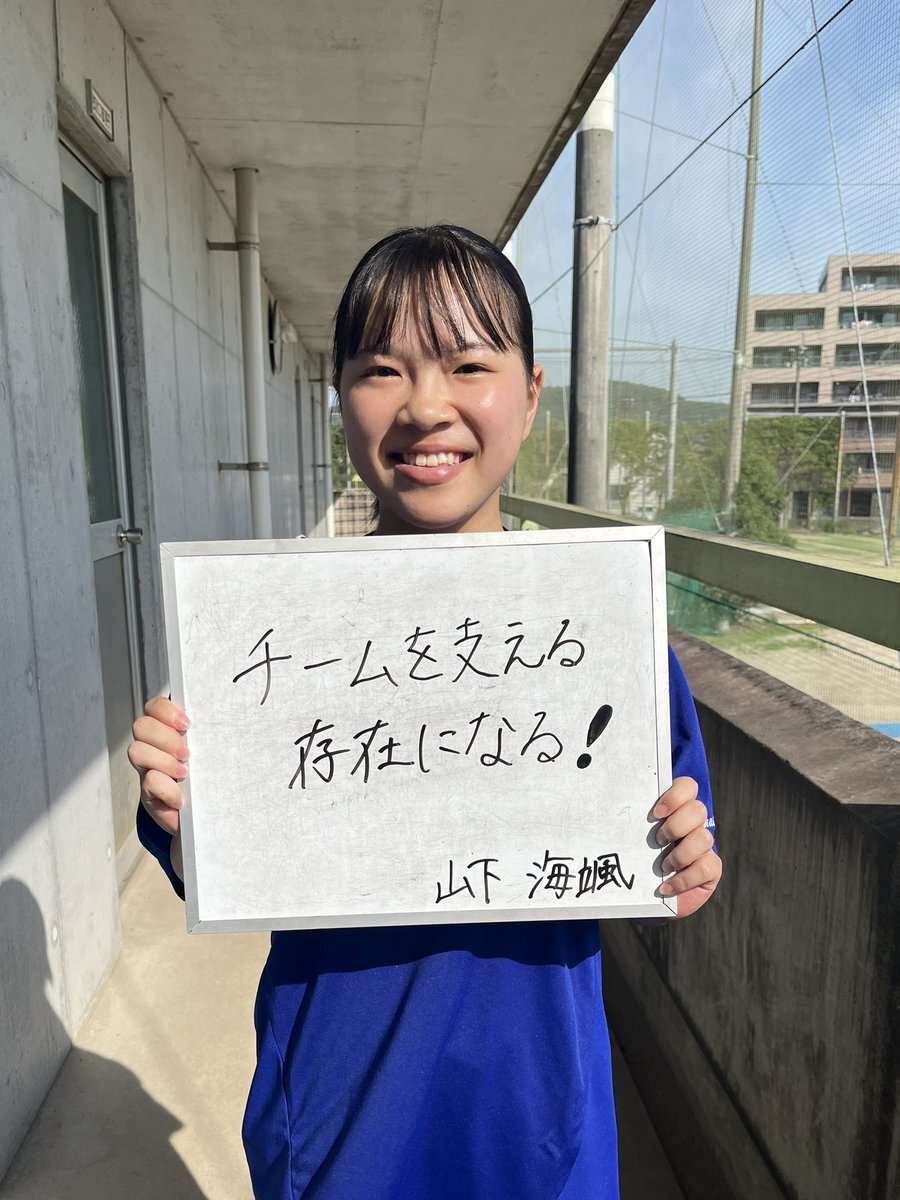 チームを支える
存在になる!
山下 海颯